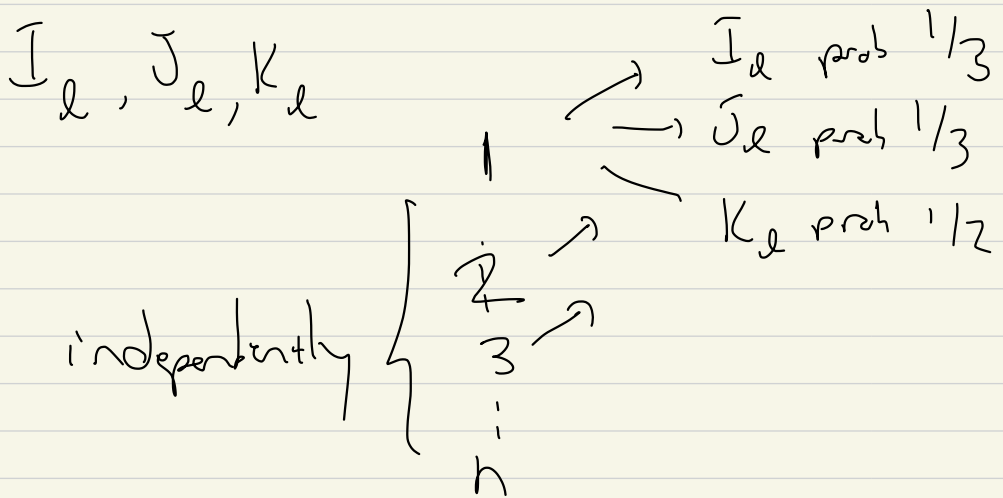 I_l, J_l, K_l
1 → I_l prob 1/3
→ J_l prob 1/3
K_l prob 1/2
independently { 2 →
3 →
⋮
n